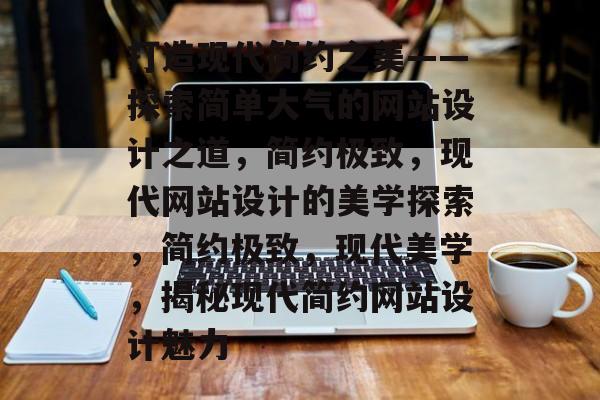 打造现代简约之美——
探索简单大气的网站设
计之道，简约极致，现
代网站设计的美学探索
，简约极致，现代美学
，揭秘现代简约网站设
计魅力